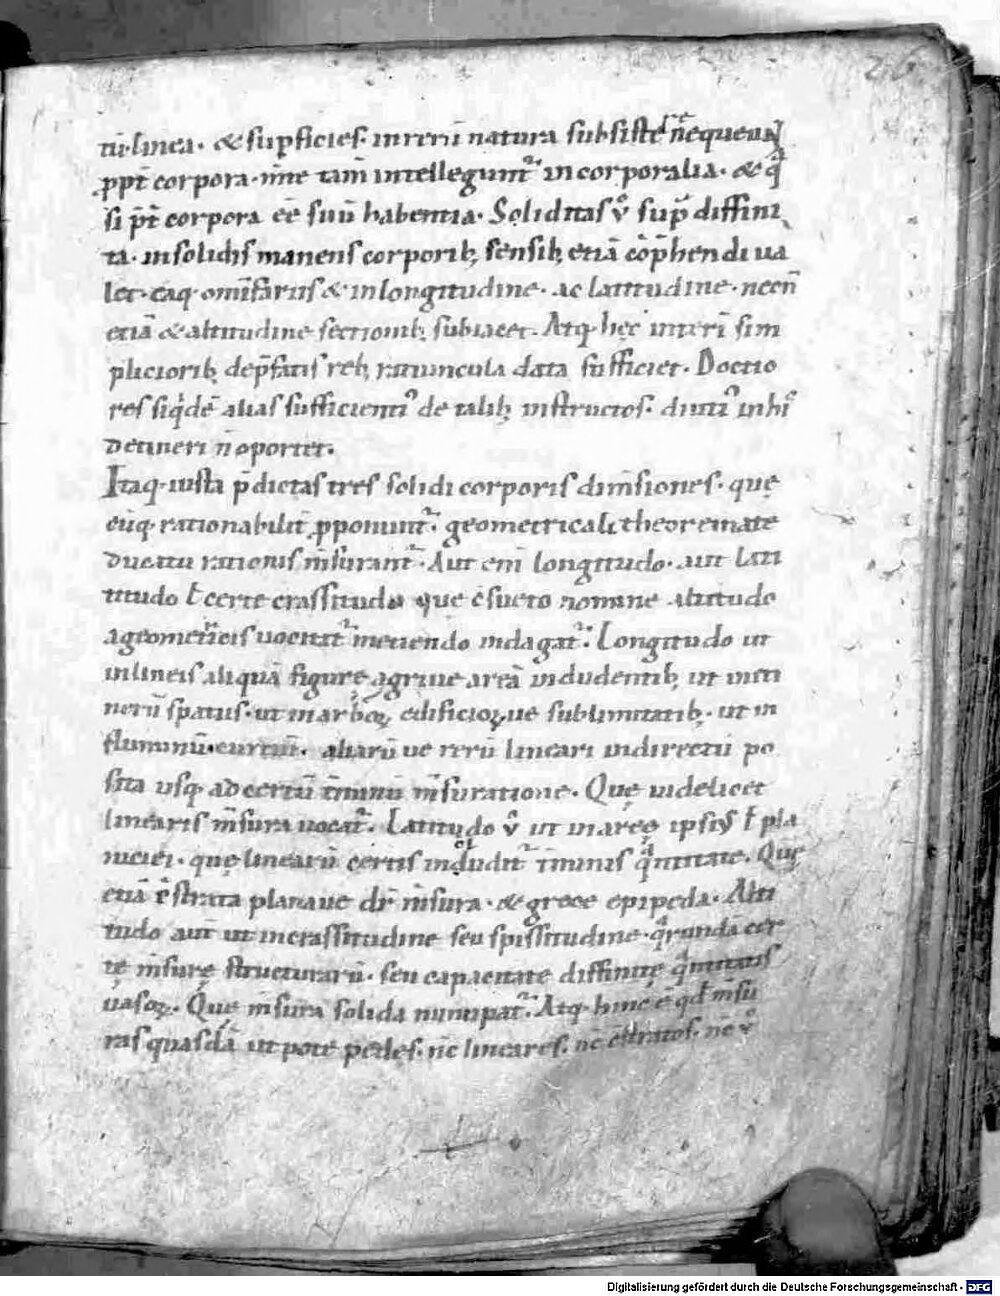 tiī linea. & supficies. in rerū natura subsistere neq̄ueuN
p̱p̄t corpora. nn̄e tam̄ intelleguntᷣ incorporalia. & qͣ
si p̄t corpora eē suū habentia. Soliditas v̊ sup̄ diffini
ta. in solidis manens corporibꝫ sensibꝫ etiā cōp̄hendi ua
let. eaqꝫ omīfariis & in longitudine. ac latitudine. necn̄
etiā & altitudine sectionibꝫ subiacet. Atqꝫ hęc interī sim
plicioribꝫ dep̄fatis rebꝫ ratiuncula data sufficiet. Doctio
res siqͥdē alias sufficientᷣ de talibꝫ instructos. diutiᷣ in hiˢ
detineri n̄ oportet.
Itaqꝫ iusta p̄dictas tres solidi corporis dim̄siones. quę
cūqꝫ rationabilit̄ ꝓponuntᷣ. geometricali theoremate
ductu rationis m̄surantᷣ. Aut eni longitudo. aut lati
titudo ł certe crassitudo que c̄sueto nomine altitudo
a geometricis uocitatᷣ metiendo indagatᷣ. Longitudo ut
in lineis aliquā figurę agriue areā includentibꝫ ut in iti
nerū spatiis. ut in arboꝝ edificioꝝue sublimitatibꝫ. ut in
fluminū cursu. aliarū ue rerū lineari in directū po
sita usqꝫ ad certū t̄minū m̄suratione. Quę uidelicet
linearis m̄sura uocatᷣ. Latitudo v̊ ut in areę ipsiꝰ ł pla
niciei. quę linearū certis inclꝰuditᷣ t̄minis qͣntitate. Quę
etiā c̄strata planaue dr̄ m̄sura. & grece epipeda. Alti
tudo aut̄ ut in crassitudine seu spissitudine. qͣrundā cer
tę m̄surę structurarū. seu capacitate diffinitę qͣntitatis
uasoꝝ. Que m̄sura solida nuncupatᷣ. Atqꝫ hinc ē qd̄ m̄su
ras quasdā ut pote pedes. nc̄ lineares. nc̄ c̄stratos. nc̄ v̊
Digitalisierung gefördert durch die Deutsche Forschungsgemeinschaft - DFG